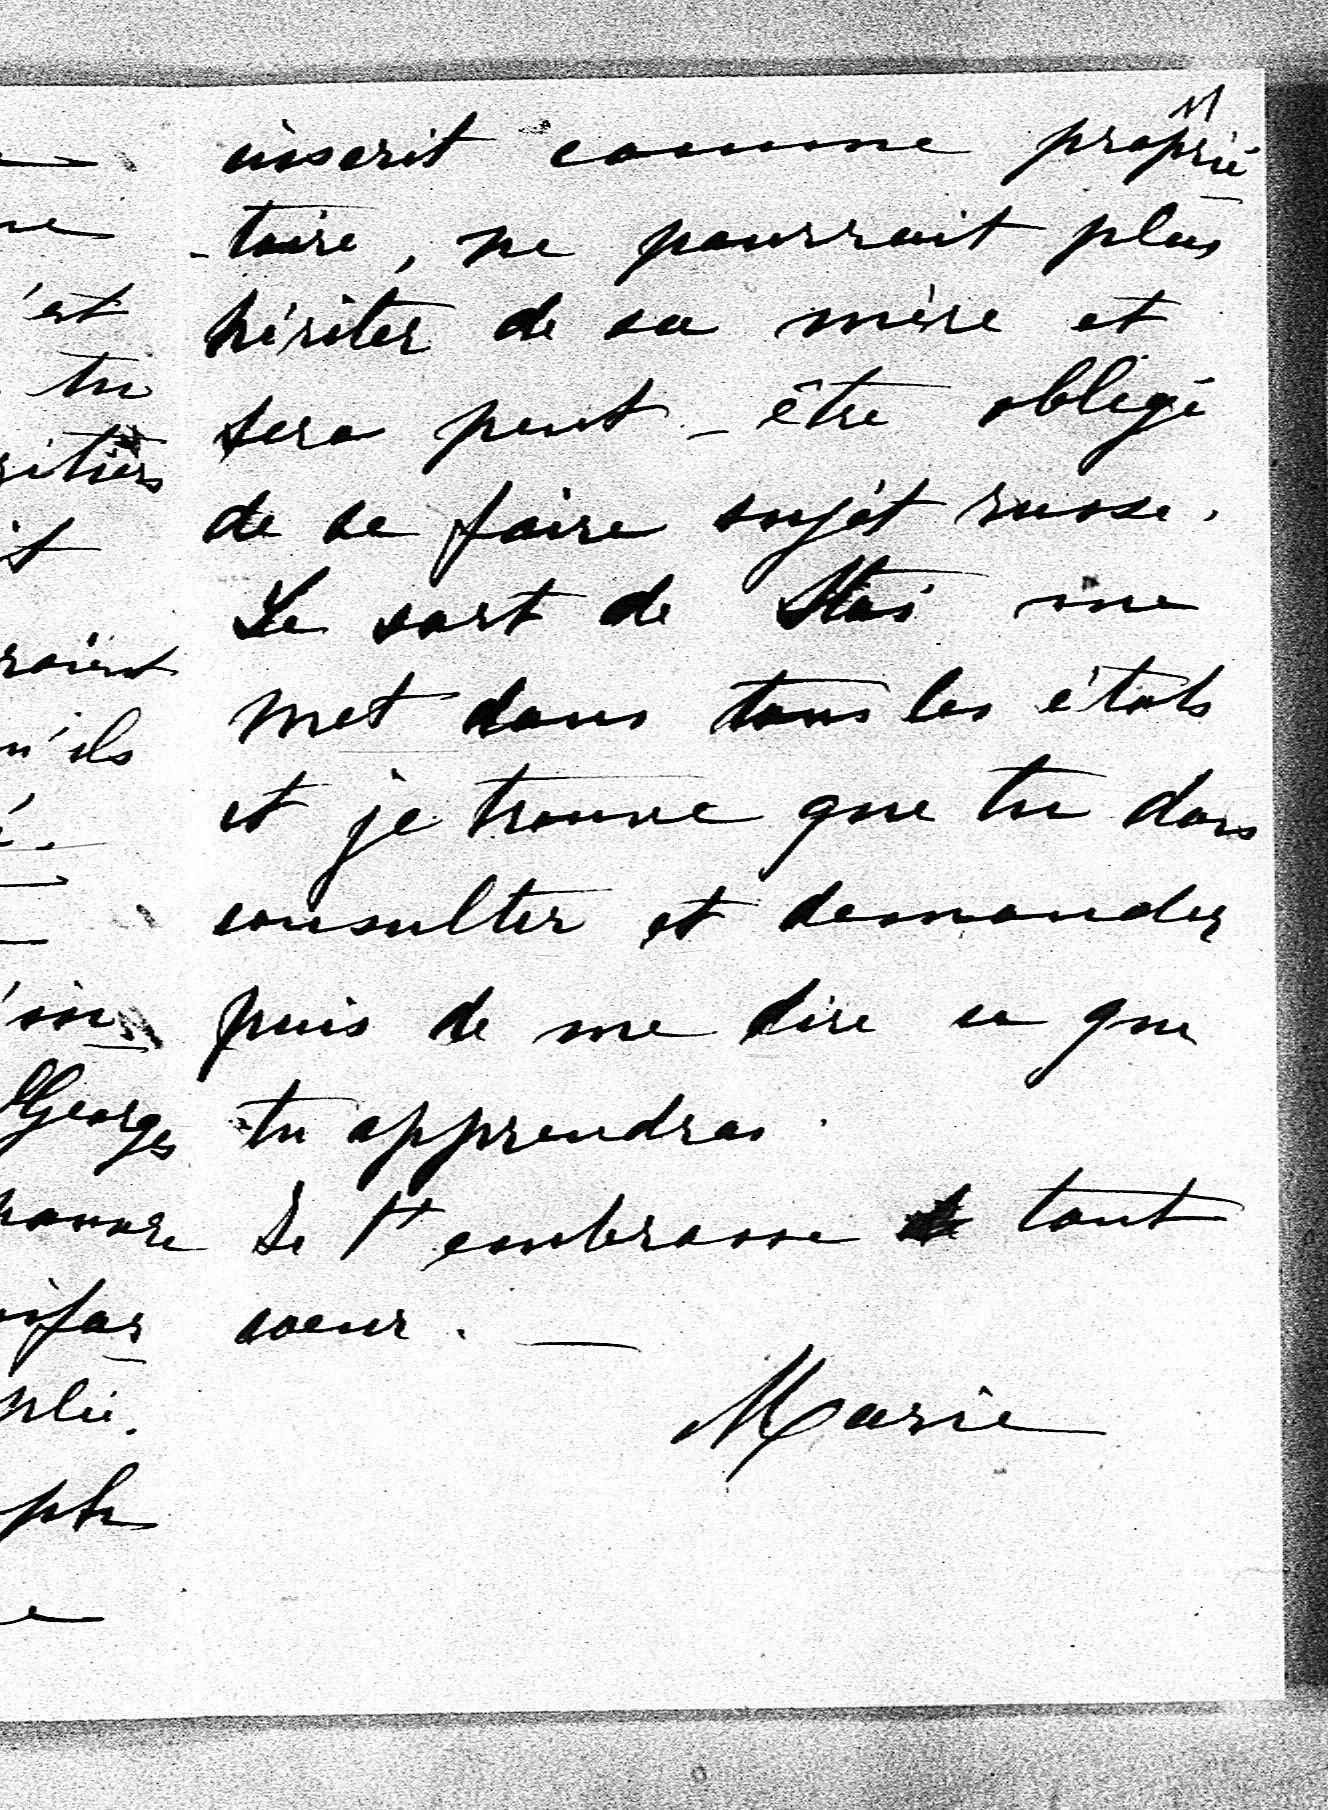 11
inscrit comme proprié-
-taire, ne pourrait plus
hériter de sa mère et
sera peut-être obligé
de se faire sujet russe.
Le sort de Stas me
met dans tous les états
et je trouve que tu dois
consulter et demander
puis de me dire ce que
tu apprendras.
Je t'embrasse tout
coeur. —
Marie
ne
'est
tu
ritiers
it
raient
n'ils
é.
Georges
ph